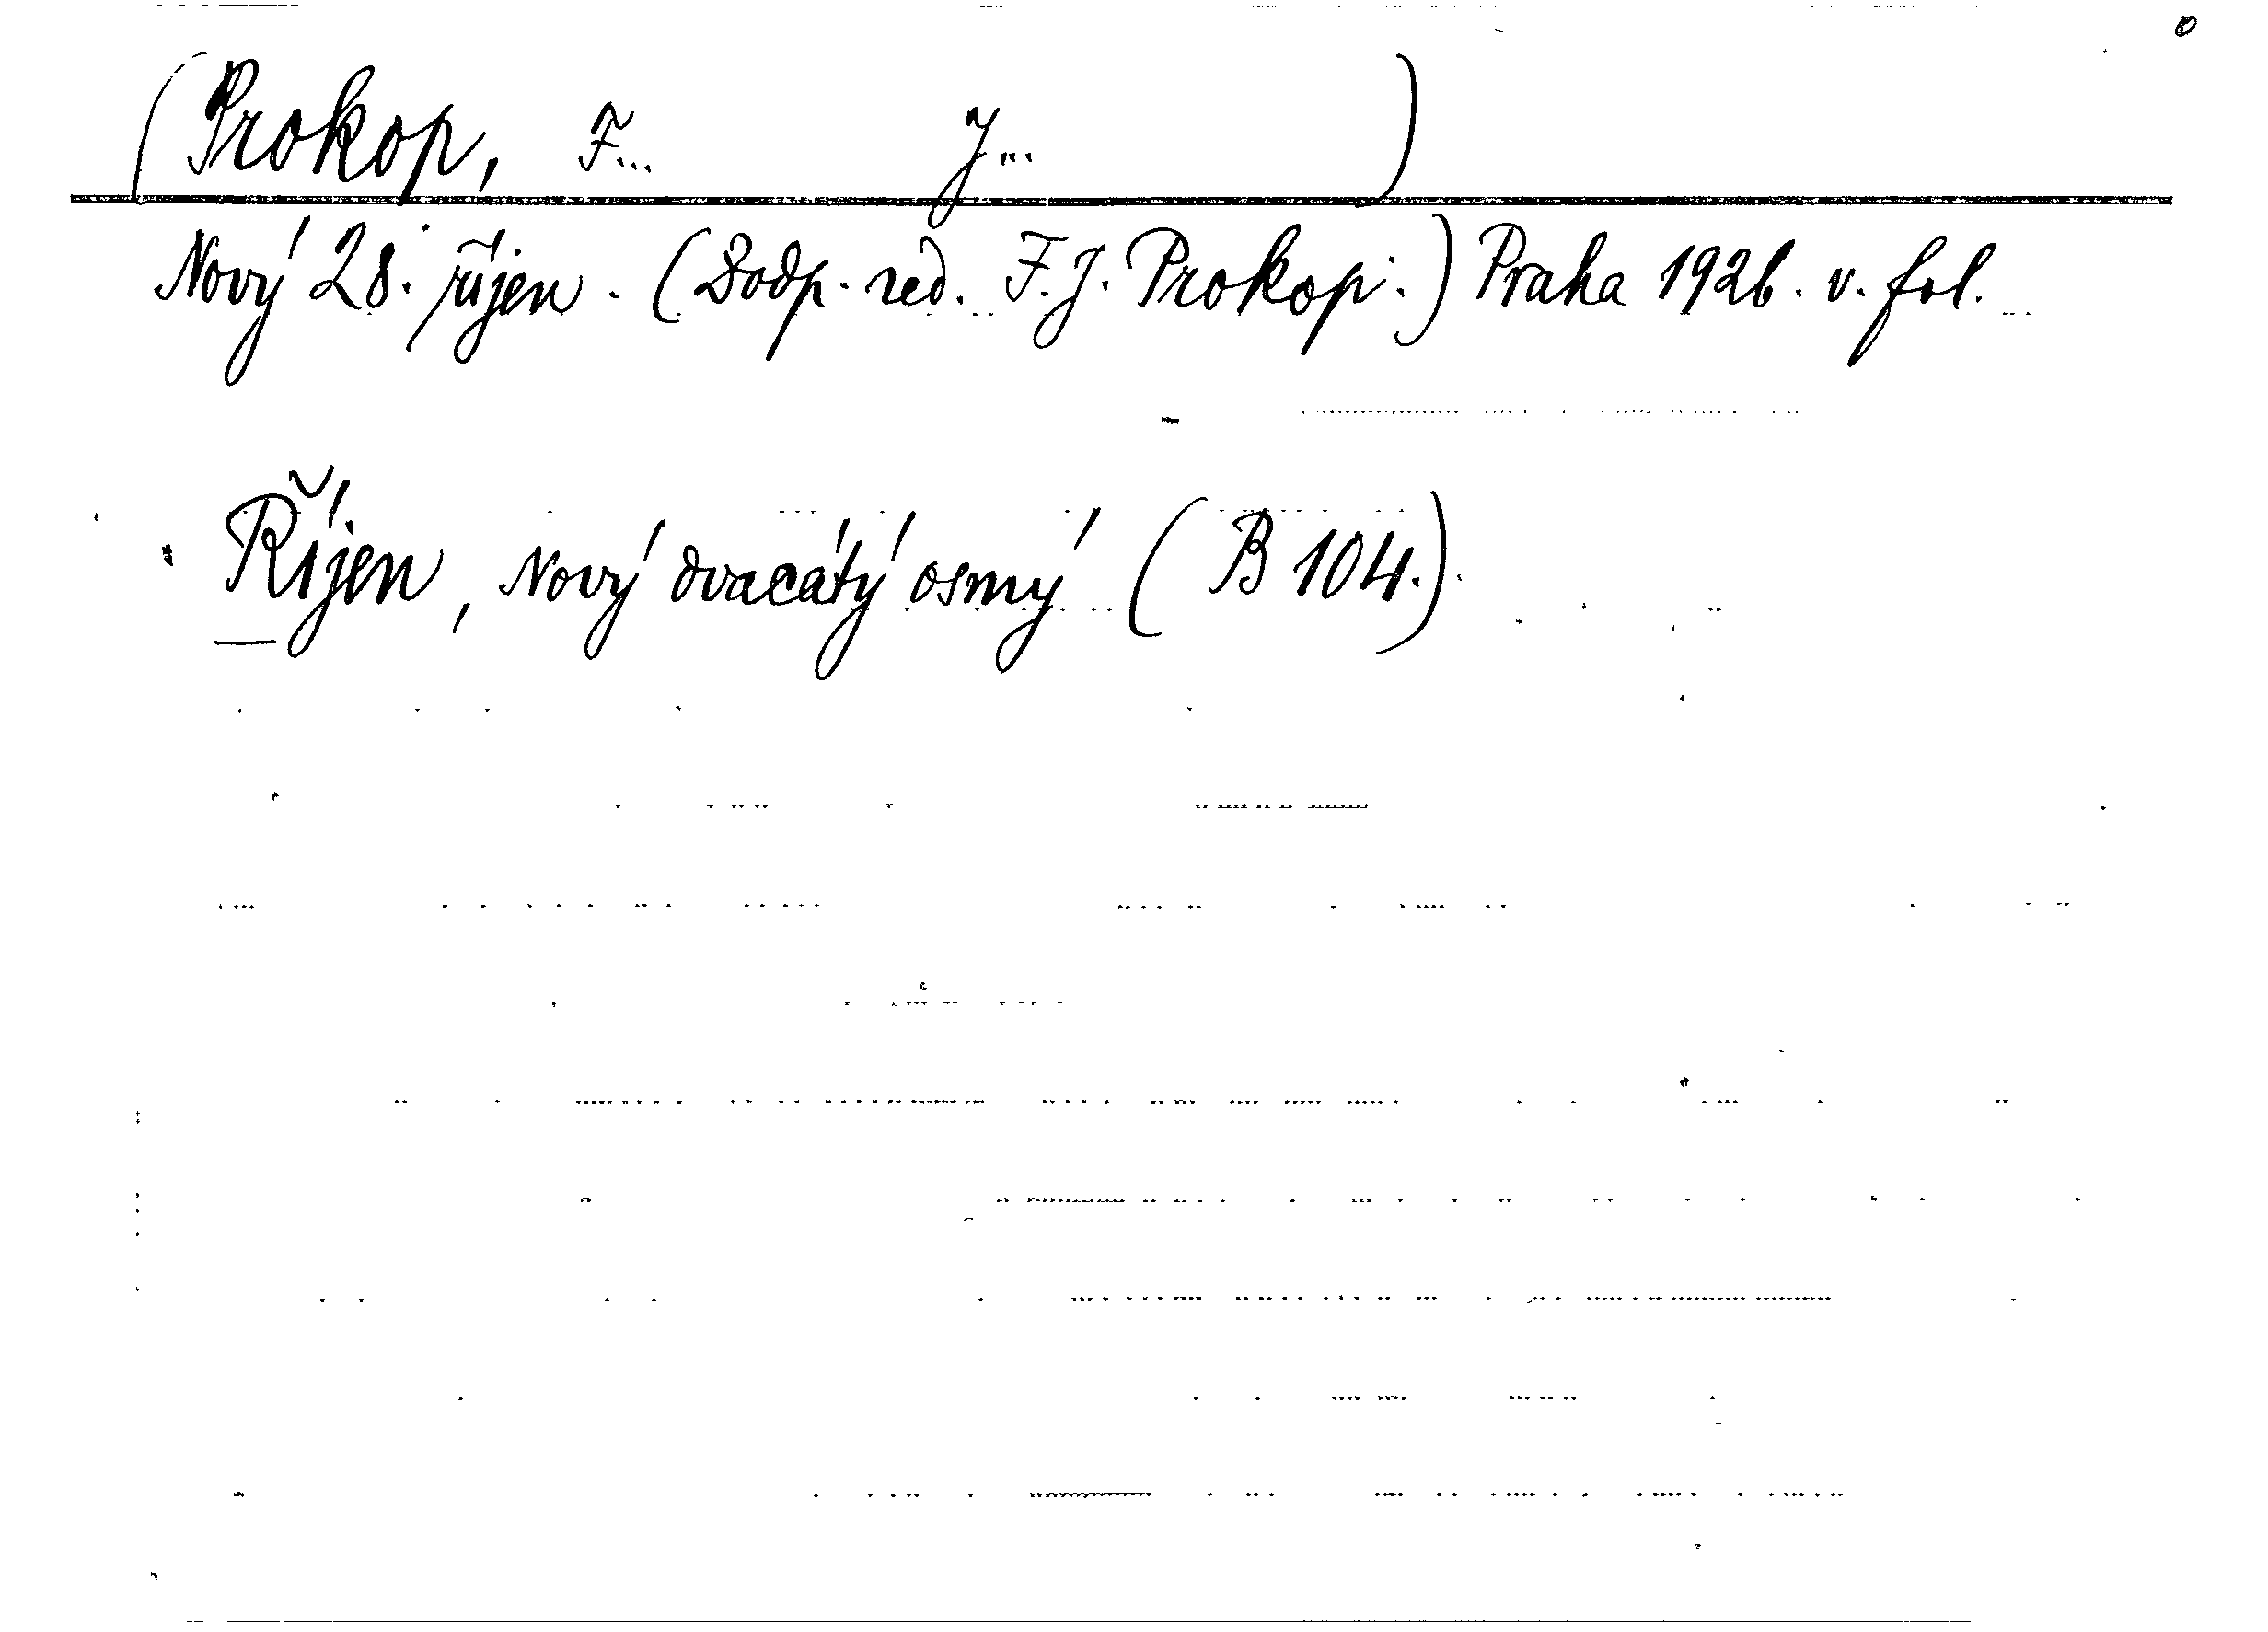 (Prokop, F... J... )
Nový 28. říjen. (Zodp. red. F. J. Prokop.) Praha 1926. v. fol.
Říjen, Nový dvacátý osmý (B 104.).